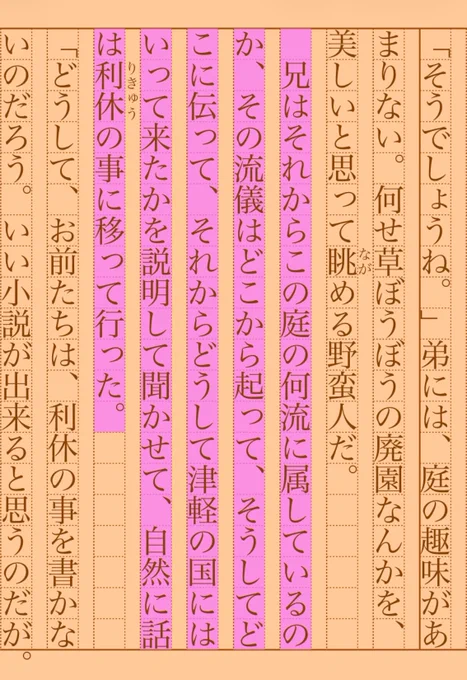 「そうでしょうね。」弟には、庭の趣味があ
まりない。何せ草ぼうぼうの廃園なんかを、
美しいと思って眺める野蛮人だ。
兄はそれからこの庭の何流に属しているの
か、その流儀はどこから起って、そうしてど
こに伝って、それからどうして津軽の国には
いって来たかを説明して聞かせて、自然に話
は利休の事に移って行った。
「どうして、お前たちは、利休の事を書かな
いのだろう。いい小説が出来ると思うのだが。